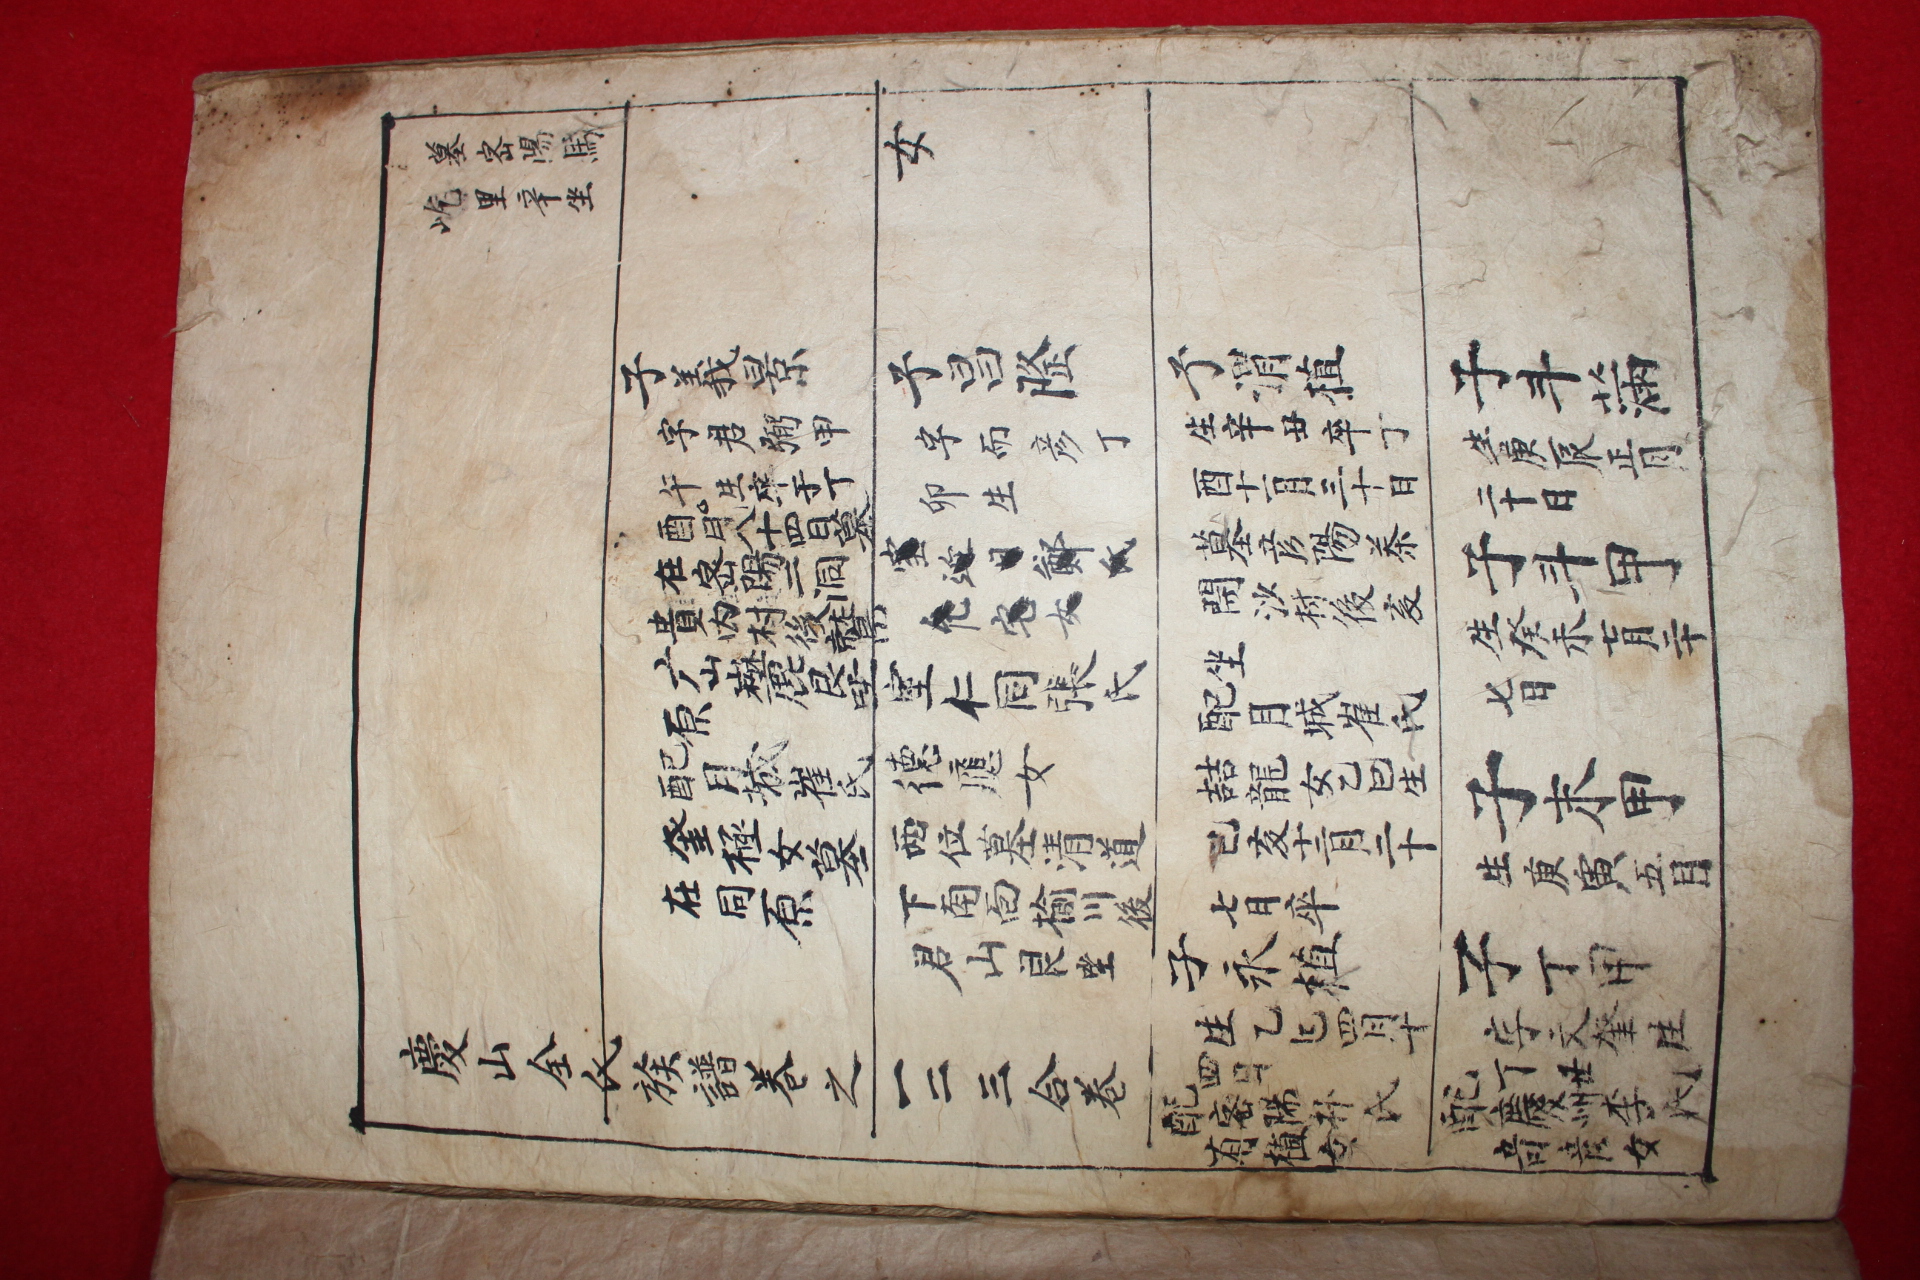 墓密陽馬
屹里辛坐
子義景
字君弼甲
午生卒于丁
酉月八十四日墓
在密陽二洞
貴内村後鷲
广山麓艮坐
原
配月城崔氏
奎極女墓
在同原
女
子昌隆
字而彦丁
卯生
室迎日鄭氏
宅女
室仁同張氏
德應女
両位墓清道
下南面楡川後
君山艮坐
子渭植
生辛丑卒丁
酉十一月三十日
墓彦陽茶
開沙村後亥
坐
配月城崔氏
喆龍女乙巳生
己亥十二月二十
七日卒
子永植
生乙巳四月十
四日
配密陽朴氏
有植女
子斗滿
生庚辰正月
二十日
子斗甲
生癸未七月二十
七日
子末甲
生庚寅五月
子丁甲
字文奎生
丁丑
配慶州李氏
彦女
慶山全氏族譜卷之一二三合卷